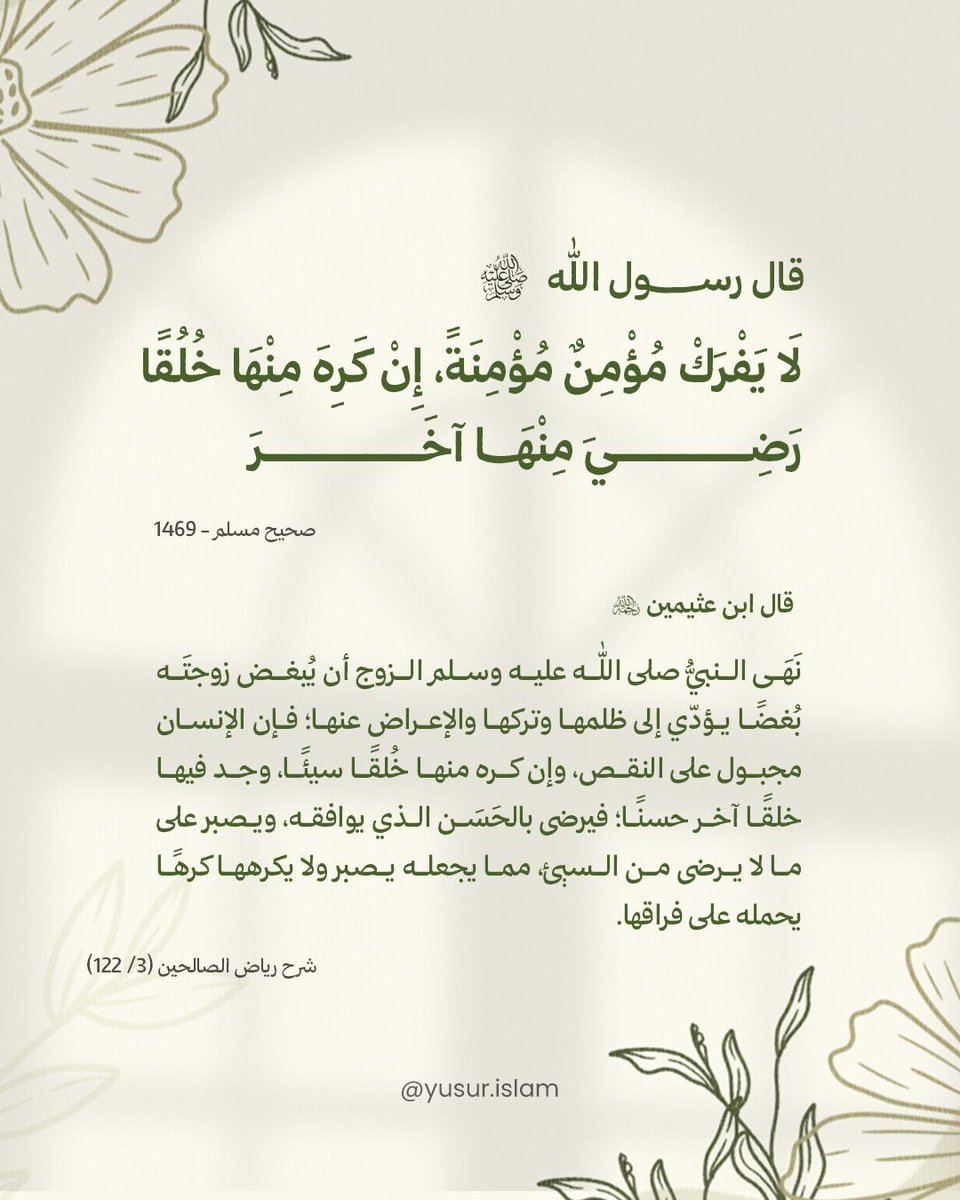 قال رســـول الله ﷺ
لَا يَفْرَكْ مُؤْمِنٌ مُؤْمِنَةً، إِنْ كَرِهَ مِنْهَا خُلُقًا
رَضِـــــــــيَ مِنْهَــا آخَـــــــــــرَ
صحيح مسلم - 1469
قال ابن عثيمين رحمه الله
نَهَـى الـنبيُّ صلى اللّٰـه عليـه وسـلم الـزوج أن يُبغـض زوجتَـه
بُغضًـا يـؤدّي إلى ظلمهـا وتركهـا والإعـراض عنهـا؛ فـإن الإنسـان
مجبـول على النقـص، وإن كـره منهـا خُلقًـا سيئًـا، وجـد فيهـا
خلقًـا آخـر حسنًـا؛ فيرضى بالحَسَـن الـذي يوافقـه، ويـصبر على
مـا لا يـرضى مـن الـسيئ، ممـا يجعلـه يـصبر ولا يكرههـا كرهًـا
يحمله على فراقها.
شرح رياض الصالحين (3/ 122)
@yusur.islam